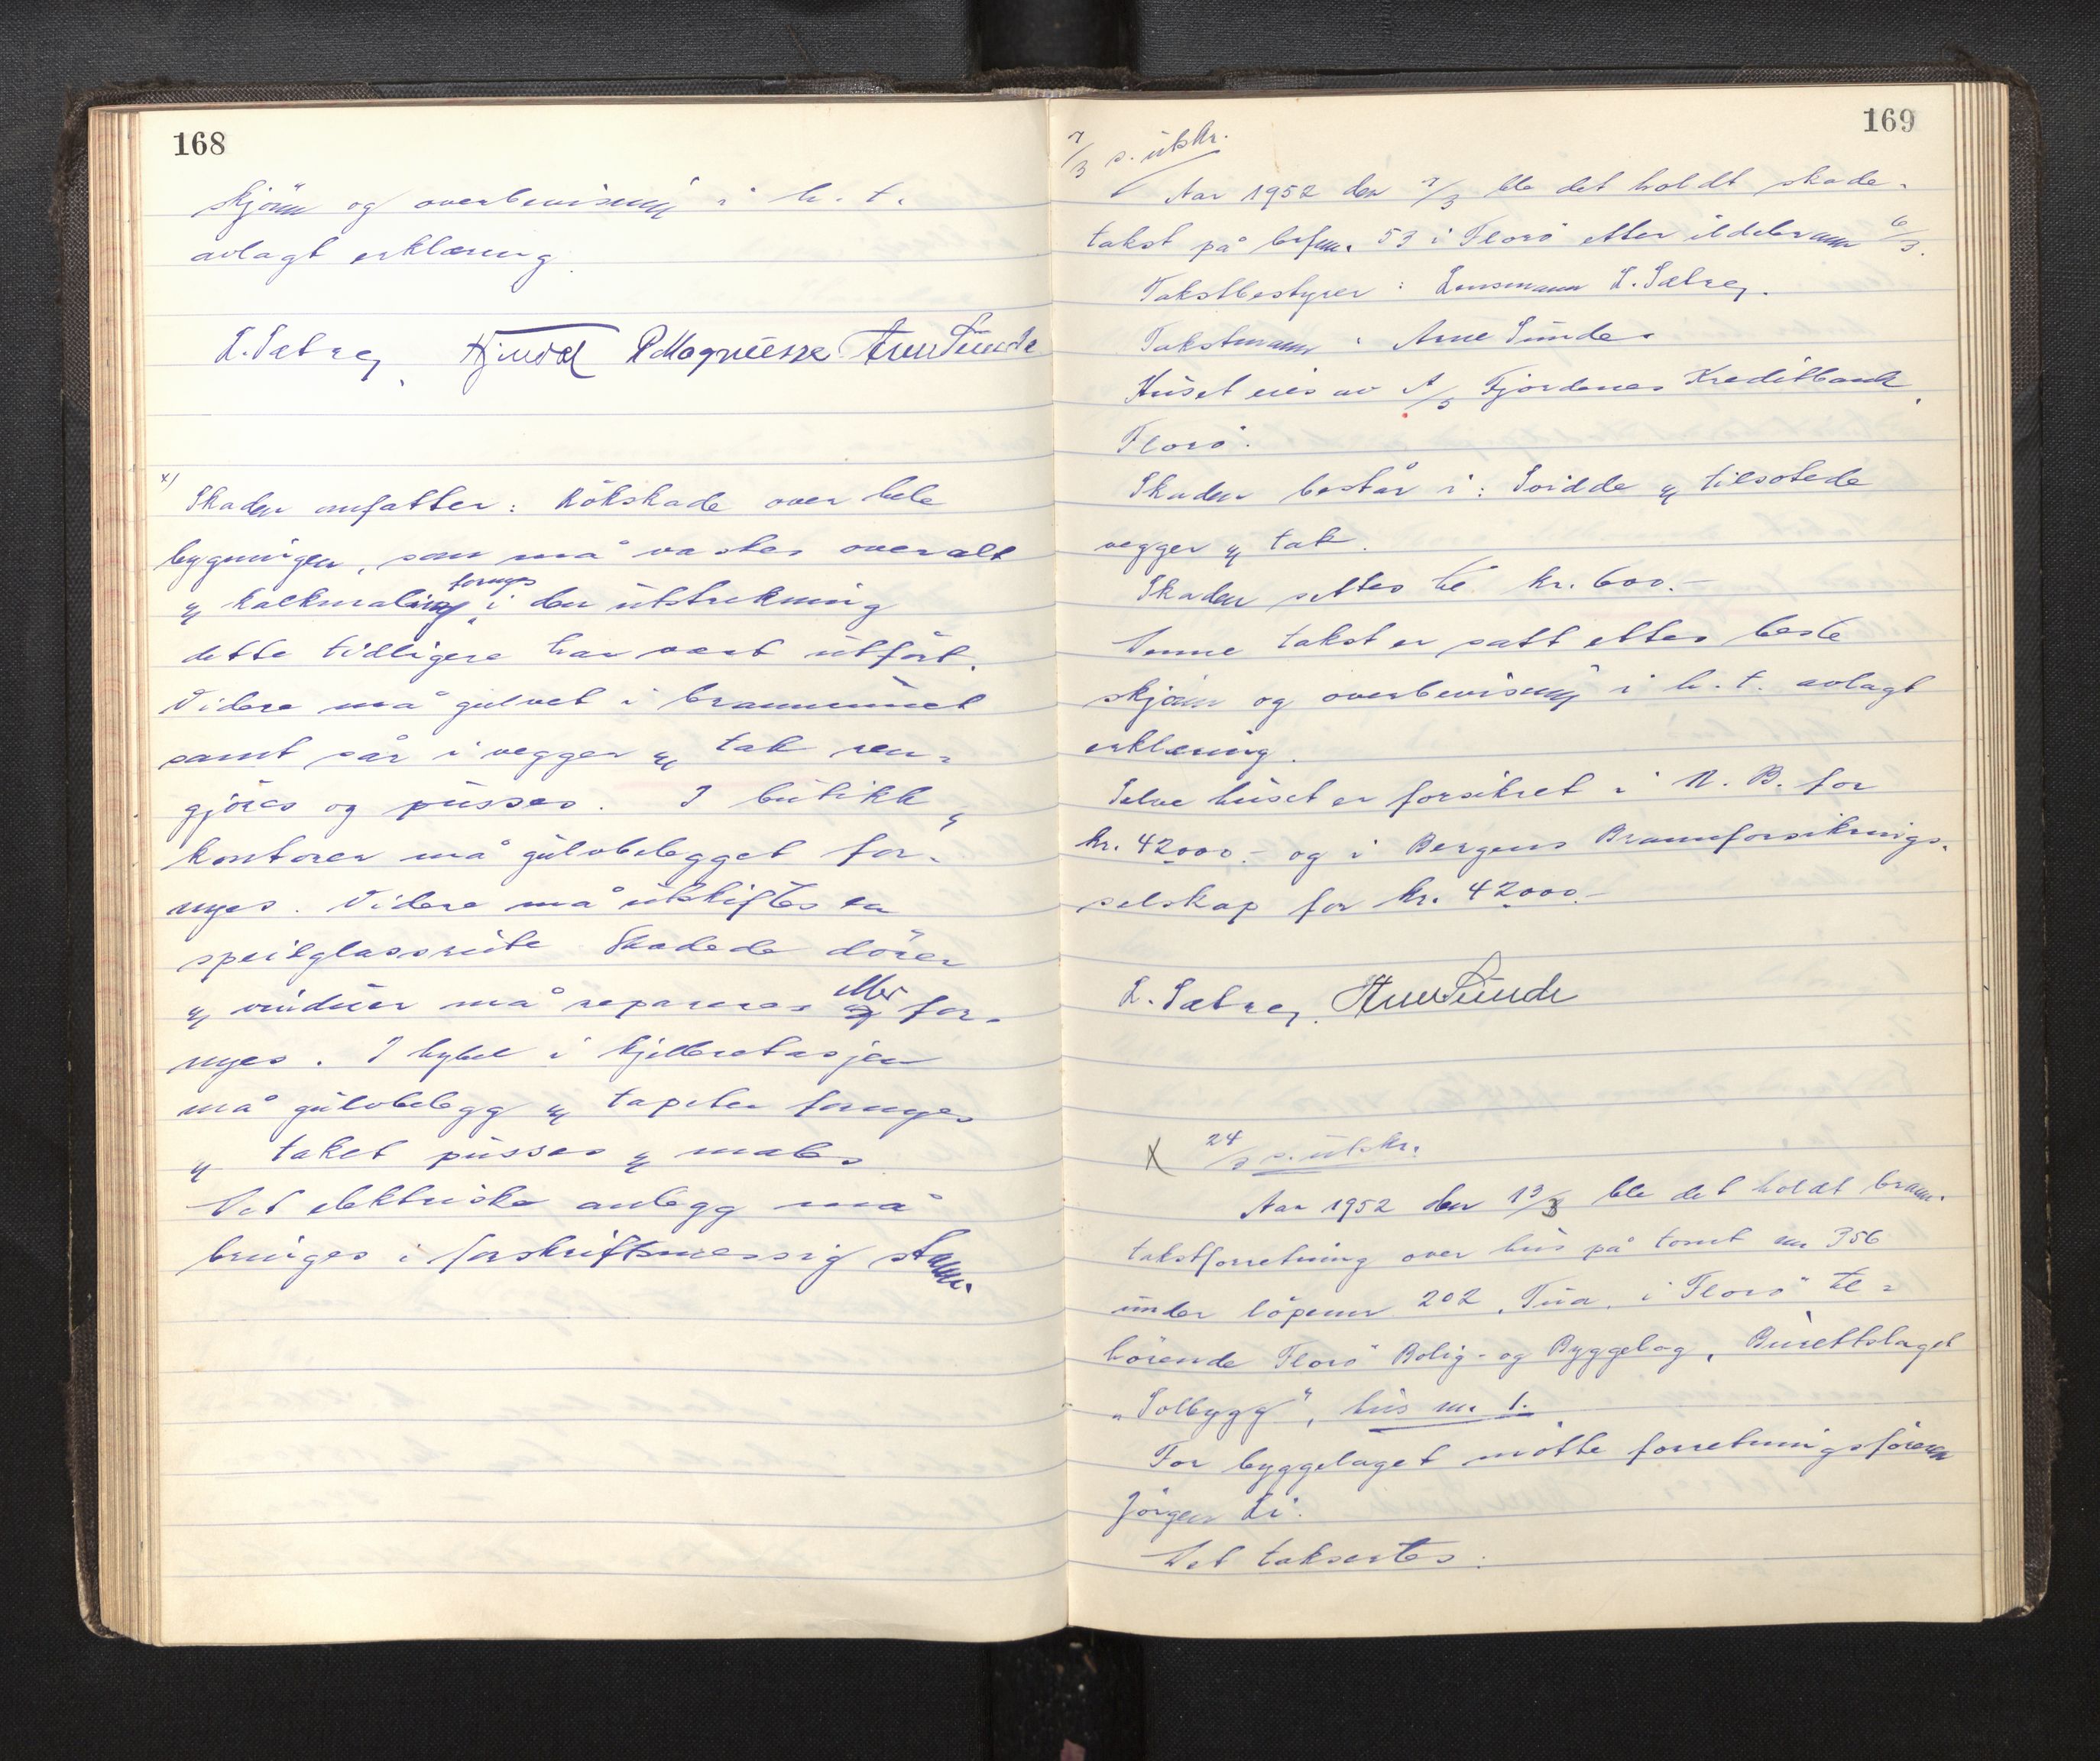 168
skjönn og overbevisning i h. t.
avlagt erklæring.
L. Sæbrey, Hjindøl P Magnussen Arne Sunde
x) Skaden omfatter: Rökskade over hele
bygningen, som må vaskes overalt
og kalkmaling fornyes i den utstrekning
dette tidligere har vært utfört.
Videre må gulvet i brannrumet
samt sår i vegger og tak ren-
gjöres og pusses. I butikk og
kontorer må gulvbelegget for-
nyes. Videre må utskiftes en
speilglassrute. Skadede dörer
og vinduer må repareres eller for-
nyes. I hybel i kjelleretasjen
må gulvbelegg og tapeter fornyes
og taket pusses og males
Det elektriske anlegg må
bringes i forskriftsmessig stann.
169
7/3 s. utskr.
Aar 1952 den 7/3 ble det holdt skade-
takst på brfnr. 53 i Florö etter ildebrann 6/3.
Takstbestyrer: Lensmann L. Sæbrey.
Takstmann: Arne Sunde.
Huset eies av A/S Fjordenes Kreditbank,
Florö.
Skaden består i: Svidde og tilsotede
vegger og tak.
Skaden settes til kr. 600.-
Denne takst er satt etter beste
skjönn og overbevisning i h. t. avlagt
erklæring.
Selve huset er forsikret i N. B. for
kr. 42000.- og i Bergens Brannforsikrings-
selskap for kr. 42000.-
L. Sæbrey. Arne Sunde
X 24/3 s. utskr.
Aar 1952 den 13/3 ble det holdt brann-
takstforretning over hus på tomt nr 356
under löpenr 202, Tua, i Florö til-
hörende Florö Bolig- og Byggelag, Burettslaget
"Solbygg", hus nr. 1.
For byggelaget mötte forretningsföreren
Jörgen Li.
Det taksertes: